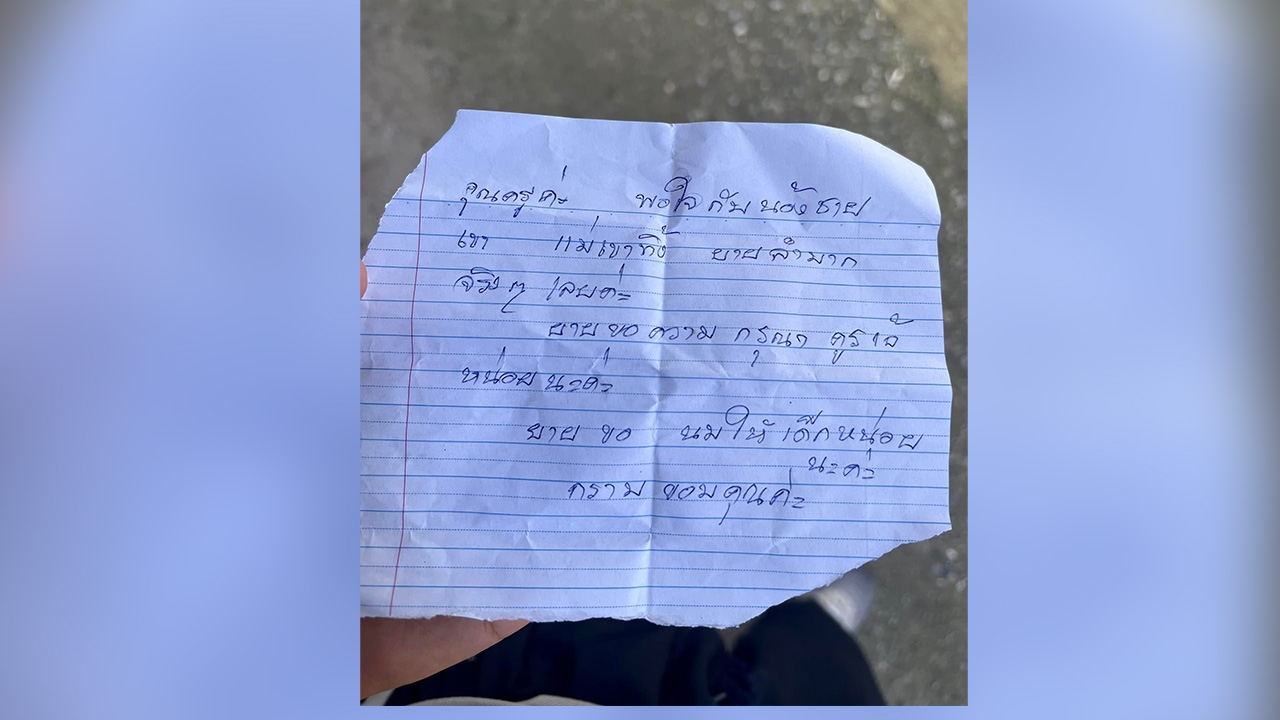 คุณครูค่ะ พอใจ กับ น้องชาย
เขา แม่เขาทิ้ง ยายลำบาก
จริงๆ เลยค่ะ
ยายขอความ กรุณา ครู
หน่อย นะค่ะ
ยาย ขอ นมให้เด็กหน่อย
นะคะ
กราบ ขอบคุณค่ะ